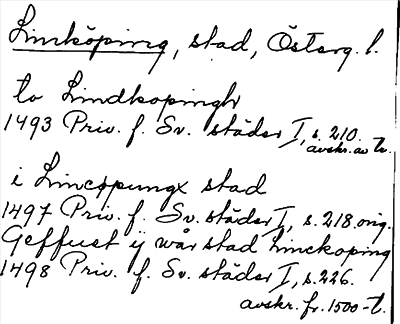 Linköping, stad, Österg. l.
to Lindkopingh
1493 Priv. f. Sv. städer I, s. 210.
avskr. av tr.
i Lincöpungx stad
1497 Priv. f. Sv. städer I, s. 218. orig.
Geffuet ÿ wår stad Linckoping
1498 Priv. f. Sv. städer I, s. 226.
avskr. fr. 1500-t.